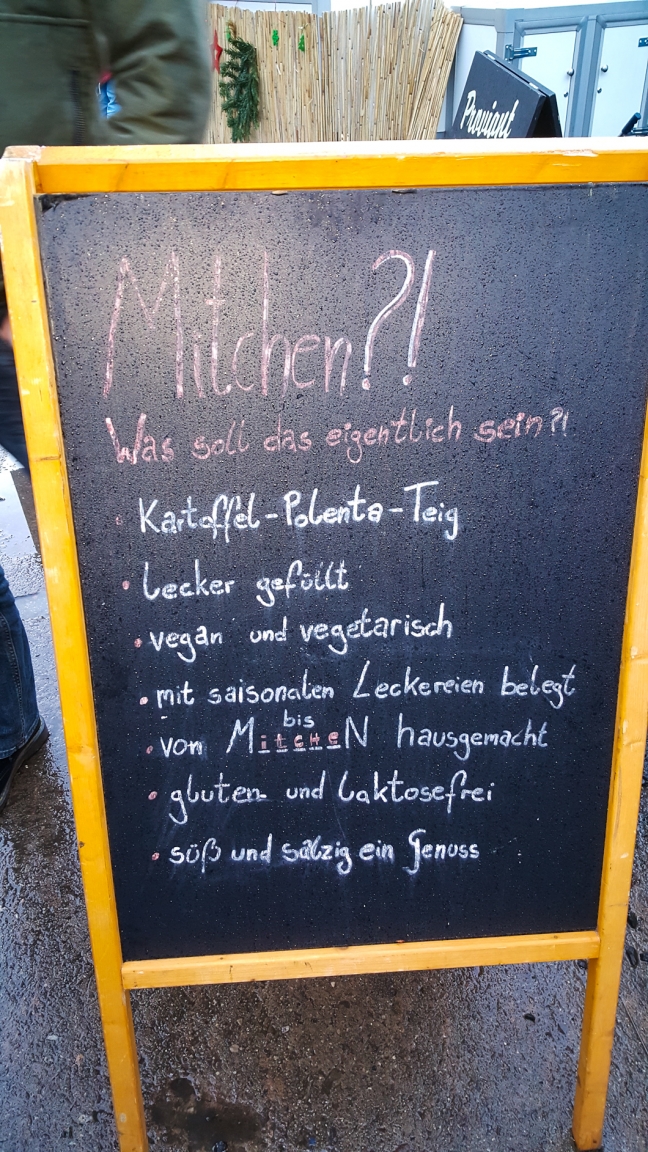 Proviant
Mitchen?!
Was soll das eigentlich sein?!
• Kartoffel-Polenta-Teig
• Lecker gefüllt
• vegan und vegetarisch
• mit saisonalen Leckereien belegt
• von MitcheN hausgemacht
bis
• gluten- und laktosefrei
• süß und salzig ein Genuss